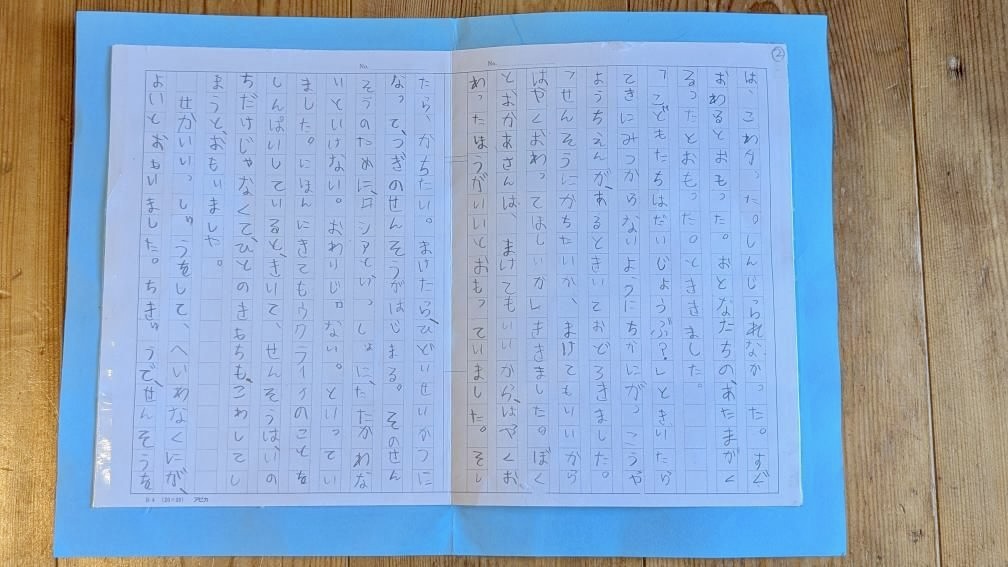 ②
は、こわかった。しんじられなかった。すぐ
おわるとおもった。おとなたちのあたまがく
るったとおもった。」とききました。
「こどもたちはだいじょうぶ?」ときいたら
てきにみつからないようにちかにがっこうや
ようちえんが、あるときいておどろきました。
「せんそうにかちたいか、まけてもいいから
はやくおわってほしいか」ききました。ぼく
とおかあさんは、まけてもいいから、はやくお
わったほうがいいとおもっていました。そし
No.
たら、かちたい。まけたら、ひどいせいかつに
なって、つぎのせんそうがはじまる。そのせん
そうのために、ロシアといっしょに、たたかわな
いといけない。おわりじゃない。といってい
ました。にほんにきてもウクライナのことを
しんぱいしていると、きいて、せんそうはいの
ちだけじゃなくて、ひとのきもちも、こわしてし
まうと、おもいました。
せかいいっしゅうをして、へいわなくにが、
よいとおもいました。ちきゅうで、せんそうを
No.
B-4 (20×20) アピカ